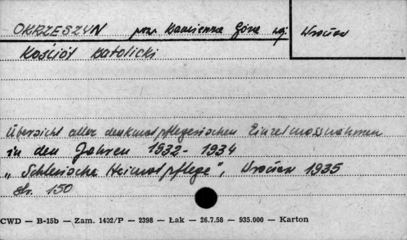 OKRZESZYN pow. Kamienna Góra woj. Wrocław
Kościół katolicki
Übersicht aller denkmalpflegerischen Einzelmassnahmen
in den Jahren 1932 - 1934
„Schlesische Heimatpflege", Wrocław 1935
str. 150
CWD — B-15b — Zam. 1402/P — 2398 — Łak — 26.7.58 — 935.000 — Karton